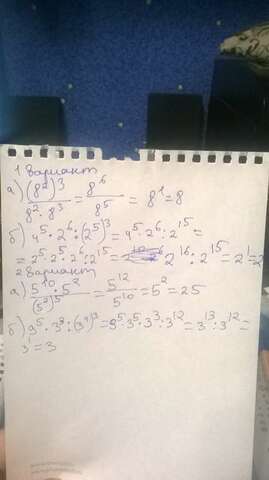 1 Вариант
а) (8²)³ / 8²·8³ = 8⁶ / 8⁵ = 8¹ = 8
б) 4⁵·2⁶:(2⁵)³ = 4⁵·2⁶:2¹⁵ =
= 2⁵·2⁵·2⁶:2¹⁵ = 2¹⁶:2¹⁵ = 2¹ = 2
2 Вариант
а) 5¹⁰·5² / (5²)⁵ = 5¹² / 5¹⁰ = 5² = 25
б) 9⁵·3³:(3⁴)³ = 3⁵·3⁵·3³:3¹² = 3¹³:3¹² =
3¹ = 3